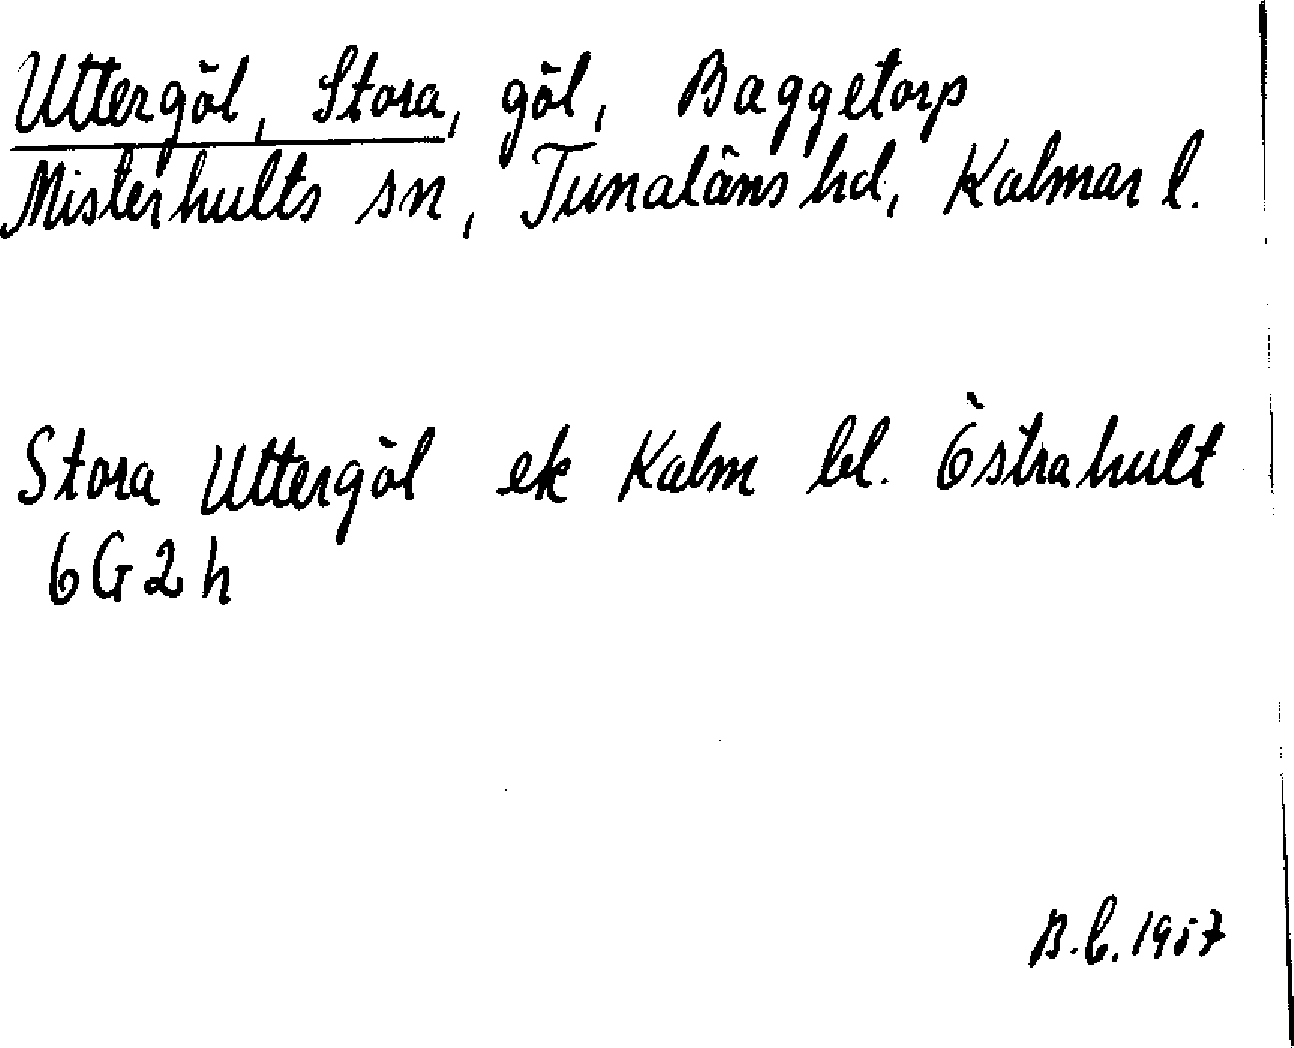 Uttergöl, Stora, göl, Baggetorp
Misterhults sn, Tunaläns hd, Kalmar l.
Stora Uttergöl ek Kalm bl. Östrahult
6G2h
B.C. 1957